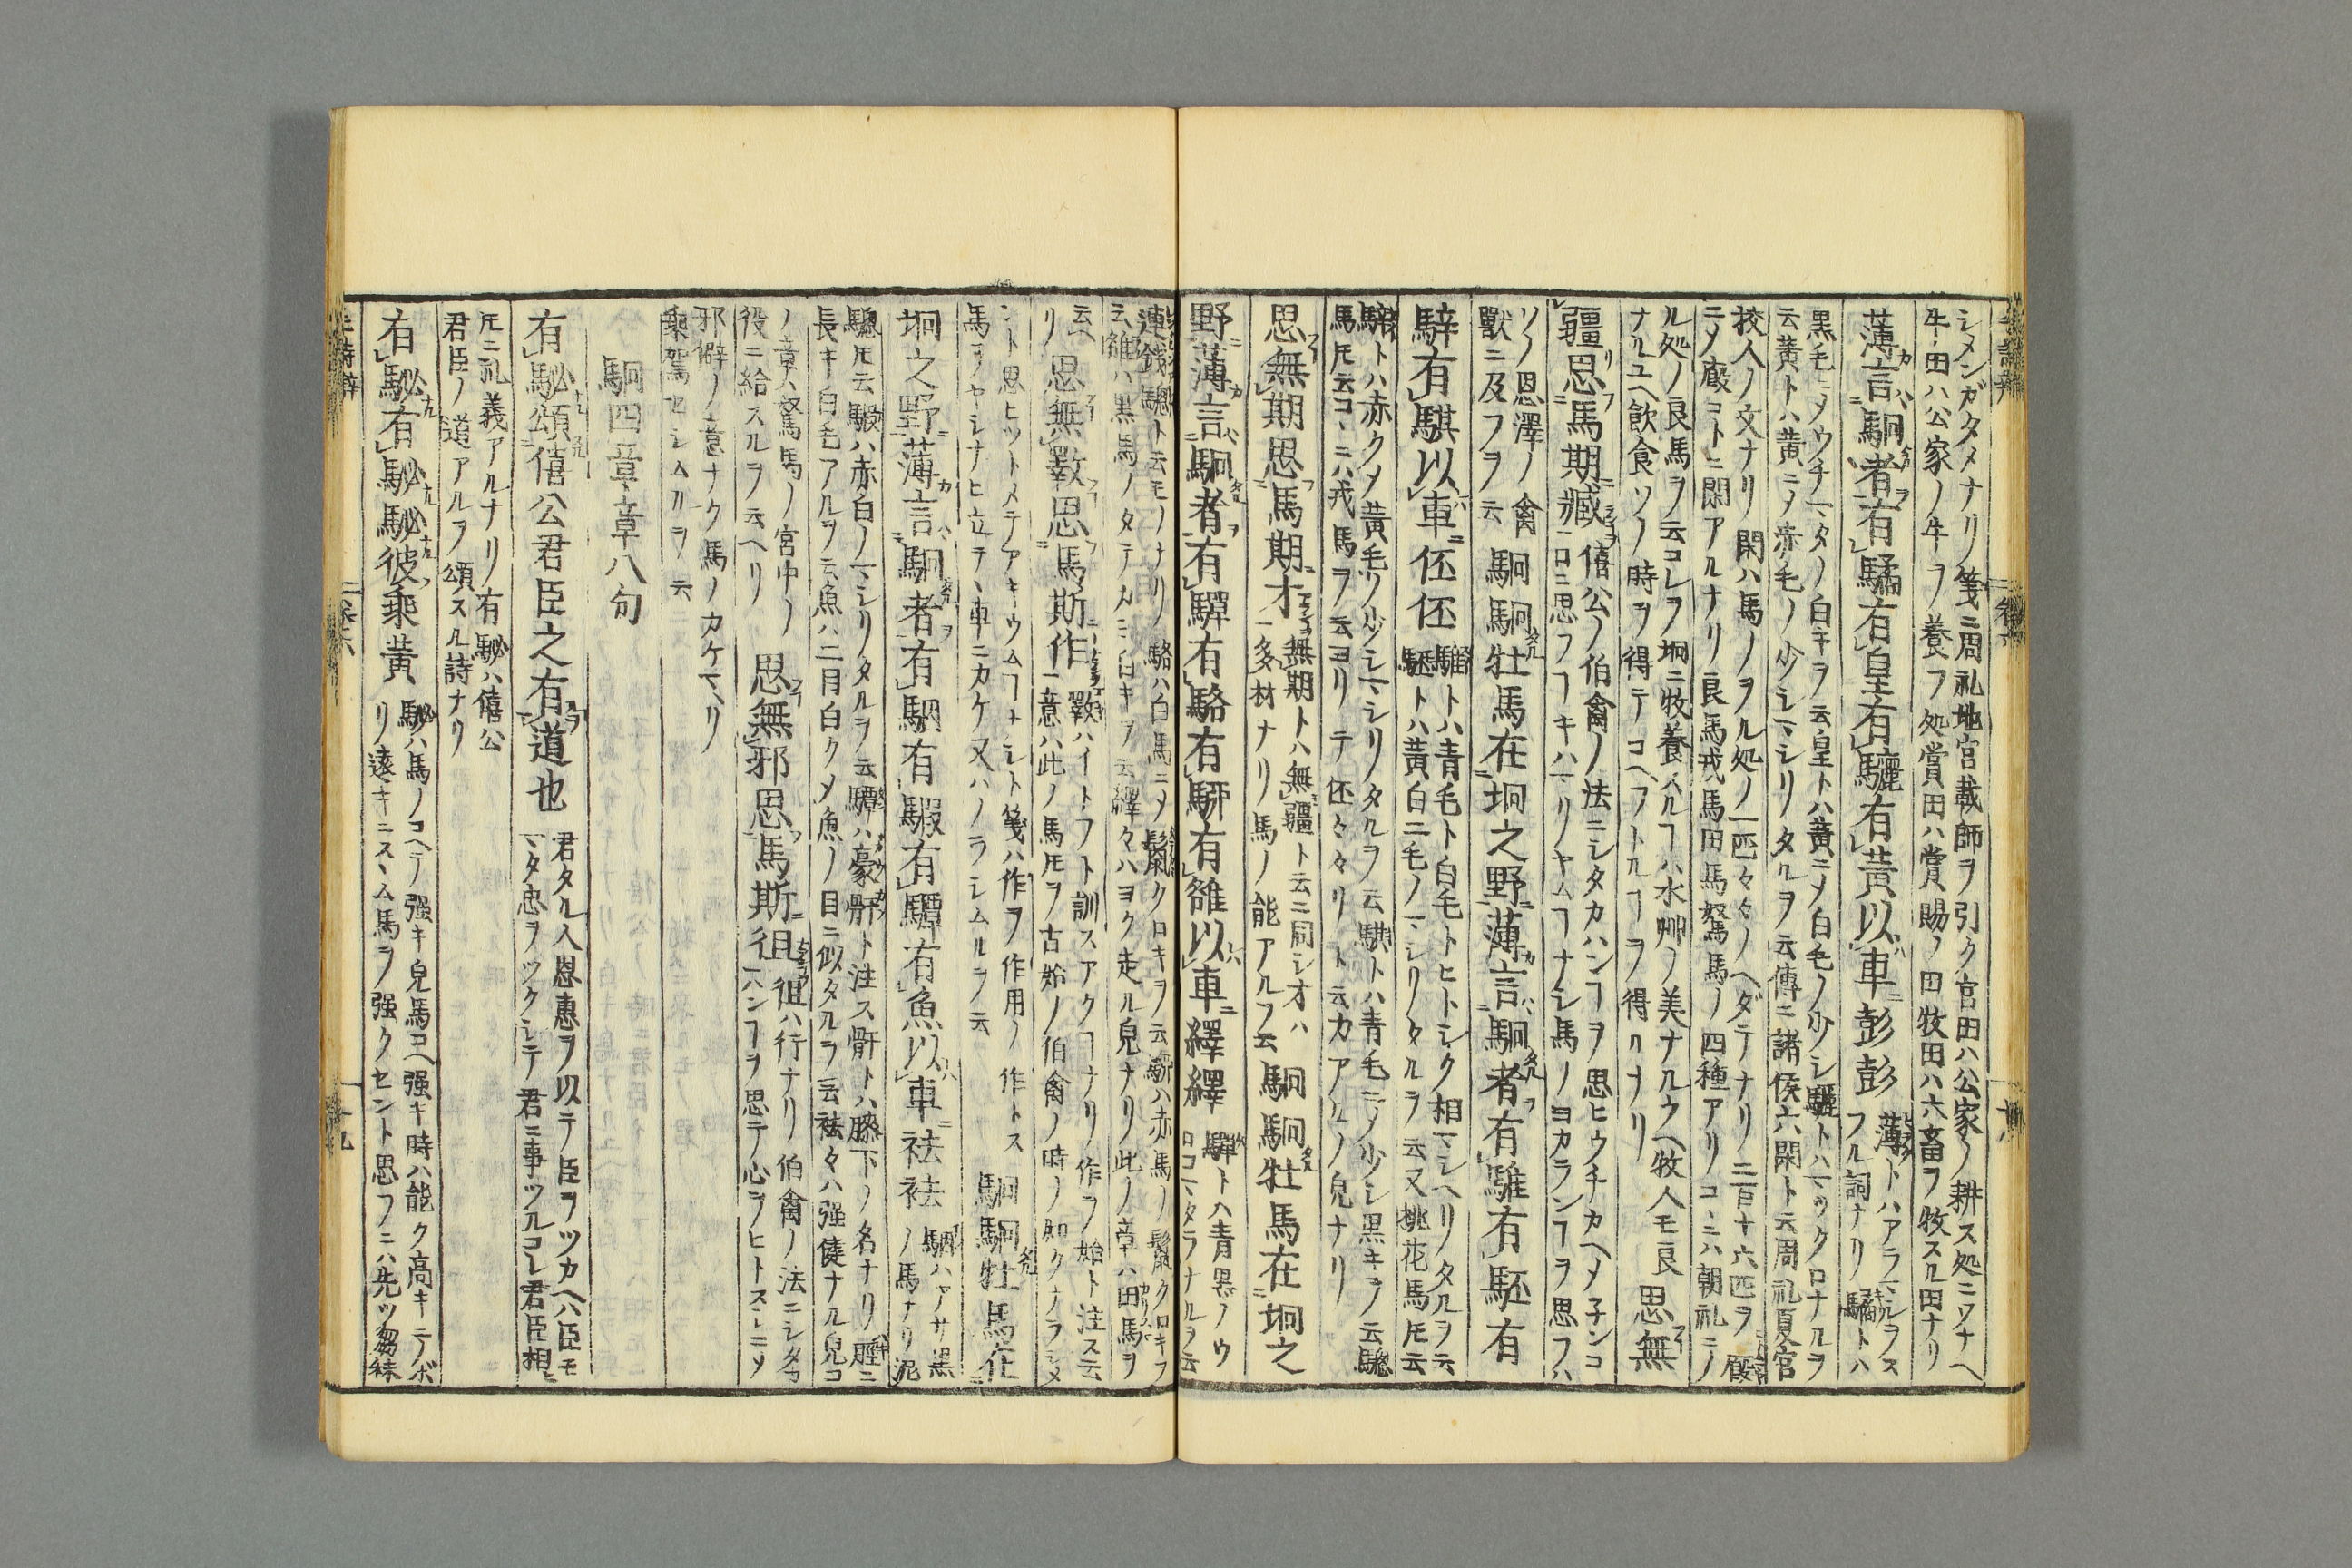 シメンガタメナリ箋ニ周礼地官載師ヲ引ク官田ハ公家ノ耕ス処ニソナヘ
牛田ハ公家ノ牛ヲ養フ処賞田ハ賞賜ノ田牧田ハ六畜ヲ牧スル田ナリ
薄言駉者有驈有皇有驪有黃以車彭彭
薄トハアラマシヲス
フル詞ナリ驈トハ
黒毛ニメウチマタノ白キヲ云皇トハ黃ニメ白毛ノ少シ驪トハマックロナルヲ
云黃トハ黃ニメ赤毛ノ少シマシリタルヲ云傳ニ諸侯六閑ト云周礼夏官
挍人ノ文ナリ閑ハ馬ノヲル処ノ一匹々々ノヘダテナリ二百十六匹ヲ廏
ニメ廏コトニ閑アルナリ良馬戎馬田馬駑馬ノ四種アリコヽニハ朝礼ニノ
ル処ノ良馬ヲ云コレヲ坰ニ牧養スルヿハ水艸ノ美ナルウヘ牧人モ良
ナルユヘ飲食ソノ時ヲ得テコヘフトルヿヲ得ルナリ
思無
疆思馬斯臧
僖公ノ伯禽ノ法ニシタカハンヿヲ思ヒウチカヘメ子ンコ
ロニ思フヿキハマリノヤムヿナシ馬ノヨカランヿヲ思フハ
ソノ恩澤ノ禽
獸ニ及フヲ云
駉駉牡馬在坰之野薄言駉者有騅有駓有
騂有騏以車伾伾
騅トハ青毛ト白毛トヒトシク相マシヘリタルヲ云
駓トハ黃白二毛ノマシリタルヲ云又桃花馬𪜈云
騂トハ赤クメ黃毛ノ少シマシリタルヲ云騏トハ青毛ニメ少シ黒キヲ云驄
馬𪜈云コヽニハ戎馬ヲ云ヨリテ伾々々リト云カアルノ皃ナリ
思無期思馬斯才
無期トハ無疆ト云ニ同シオハ
多材ナリ馬ノ能アルヲ云
駉駉牡馬在坰之
野薄言駉者有驒有駱有駵有雒以車繹繹
驒トハ青黒ノウ
ロコマタラナルヲ云
連錢驄ト云モノナリ駱ハ白馬ニメ鬛クロキヲ云駵ハ赤馬ノ鬛クロキヲ
云雒ハ黒馬ノタテカミ白キヲ云繹々ハヨク走ル皃ナリ此ノ章ハ田馬ヲ
云ヘ
リ
思無斁思馬斯作
斁ハイトフト訓スアクヿナリ作ヲ始ト注ス云
意ハ此ノ馬𪜈ヲ古始ノ伯禽ノ時ノ如クナラシメ
ント思ヒツトメテアキウムヿナシト箋ハ作ヲ作用ノ作トス
馬ヲヤシナヒ立テヽ車ニカケ又ハノラシムルヲ云
駉駉牡馬在
坰之野薄言駉者有駰有騢有驔有魚以車祛祛
駰ハアサ黒
ノ馬ナリ泥
驄𪜈云騢ハ赤白ノマシリタルヲ云驔ハ豪骭ト注ス骭トハ膝下ノ名ナリ脛ニ
長キ白毛アルヲ云魚ハ二目白クメ魚ノ目ニ似タルヲ云祛々ハ强健ナル皃コ
ノ章ハ駑馬ノ宮中ノ
役ニ給スルヲ云ヘリ
思無邪思馬斯徂
徂ハ行ナリ伯禽ノ法ニシタカ
ハンヿヲ思テ心ヲヒトスシニメ
邪僻ノ意ナク馬ノカケマヘリ
乘駕セシムルヲ云
駉四章章八句
有駜頌僖公君臣之有道也
君タル人恩惠ヲ以テ臣ヲツカヘハ臣モ
マタ忠ヲツクシテ君ニ事ツルコレ君臣相
𪜈ニ礼義アルナリ有駜ハ僖公
君臣ノ道アルヲ頌スル詩ナリ
有駜有駜駜彼乘黃
駜ハ馬ノコヘテ强キ皃馬コヘ强キ時ハ能ク高キテボ
リ遠キニスヽム馬ヲ强クセント思フニハ先ツ芻秣